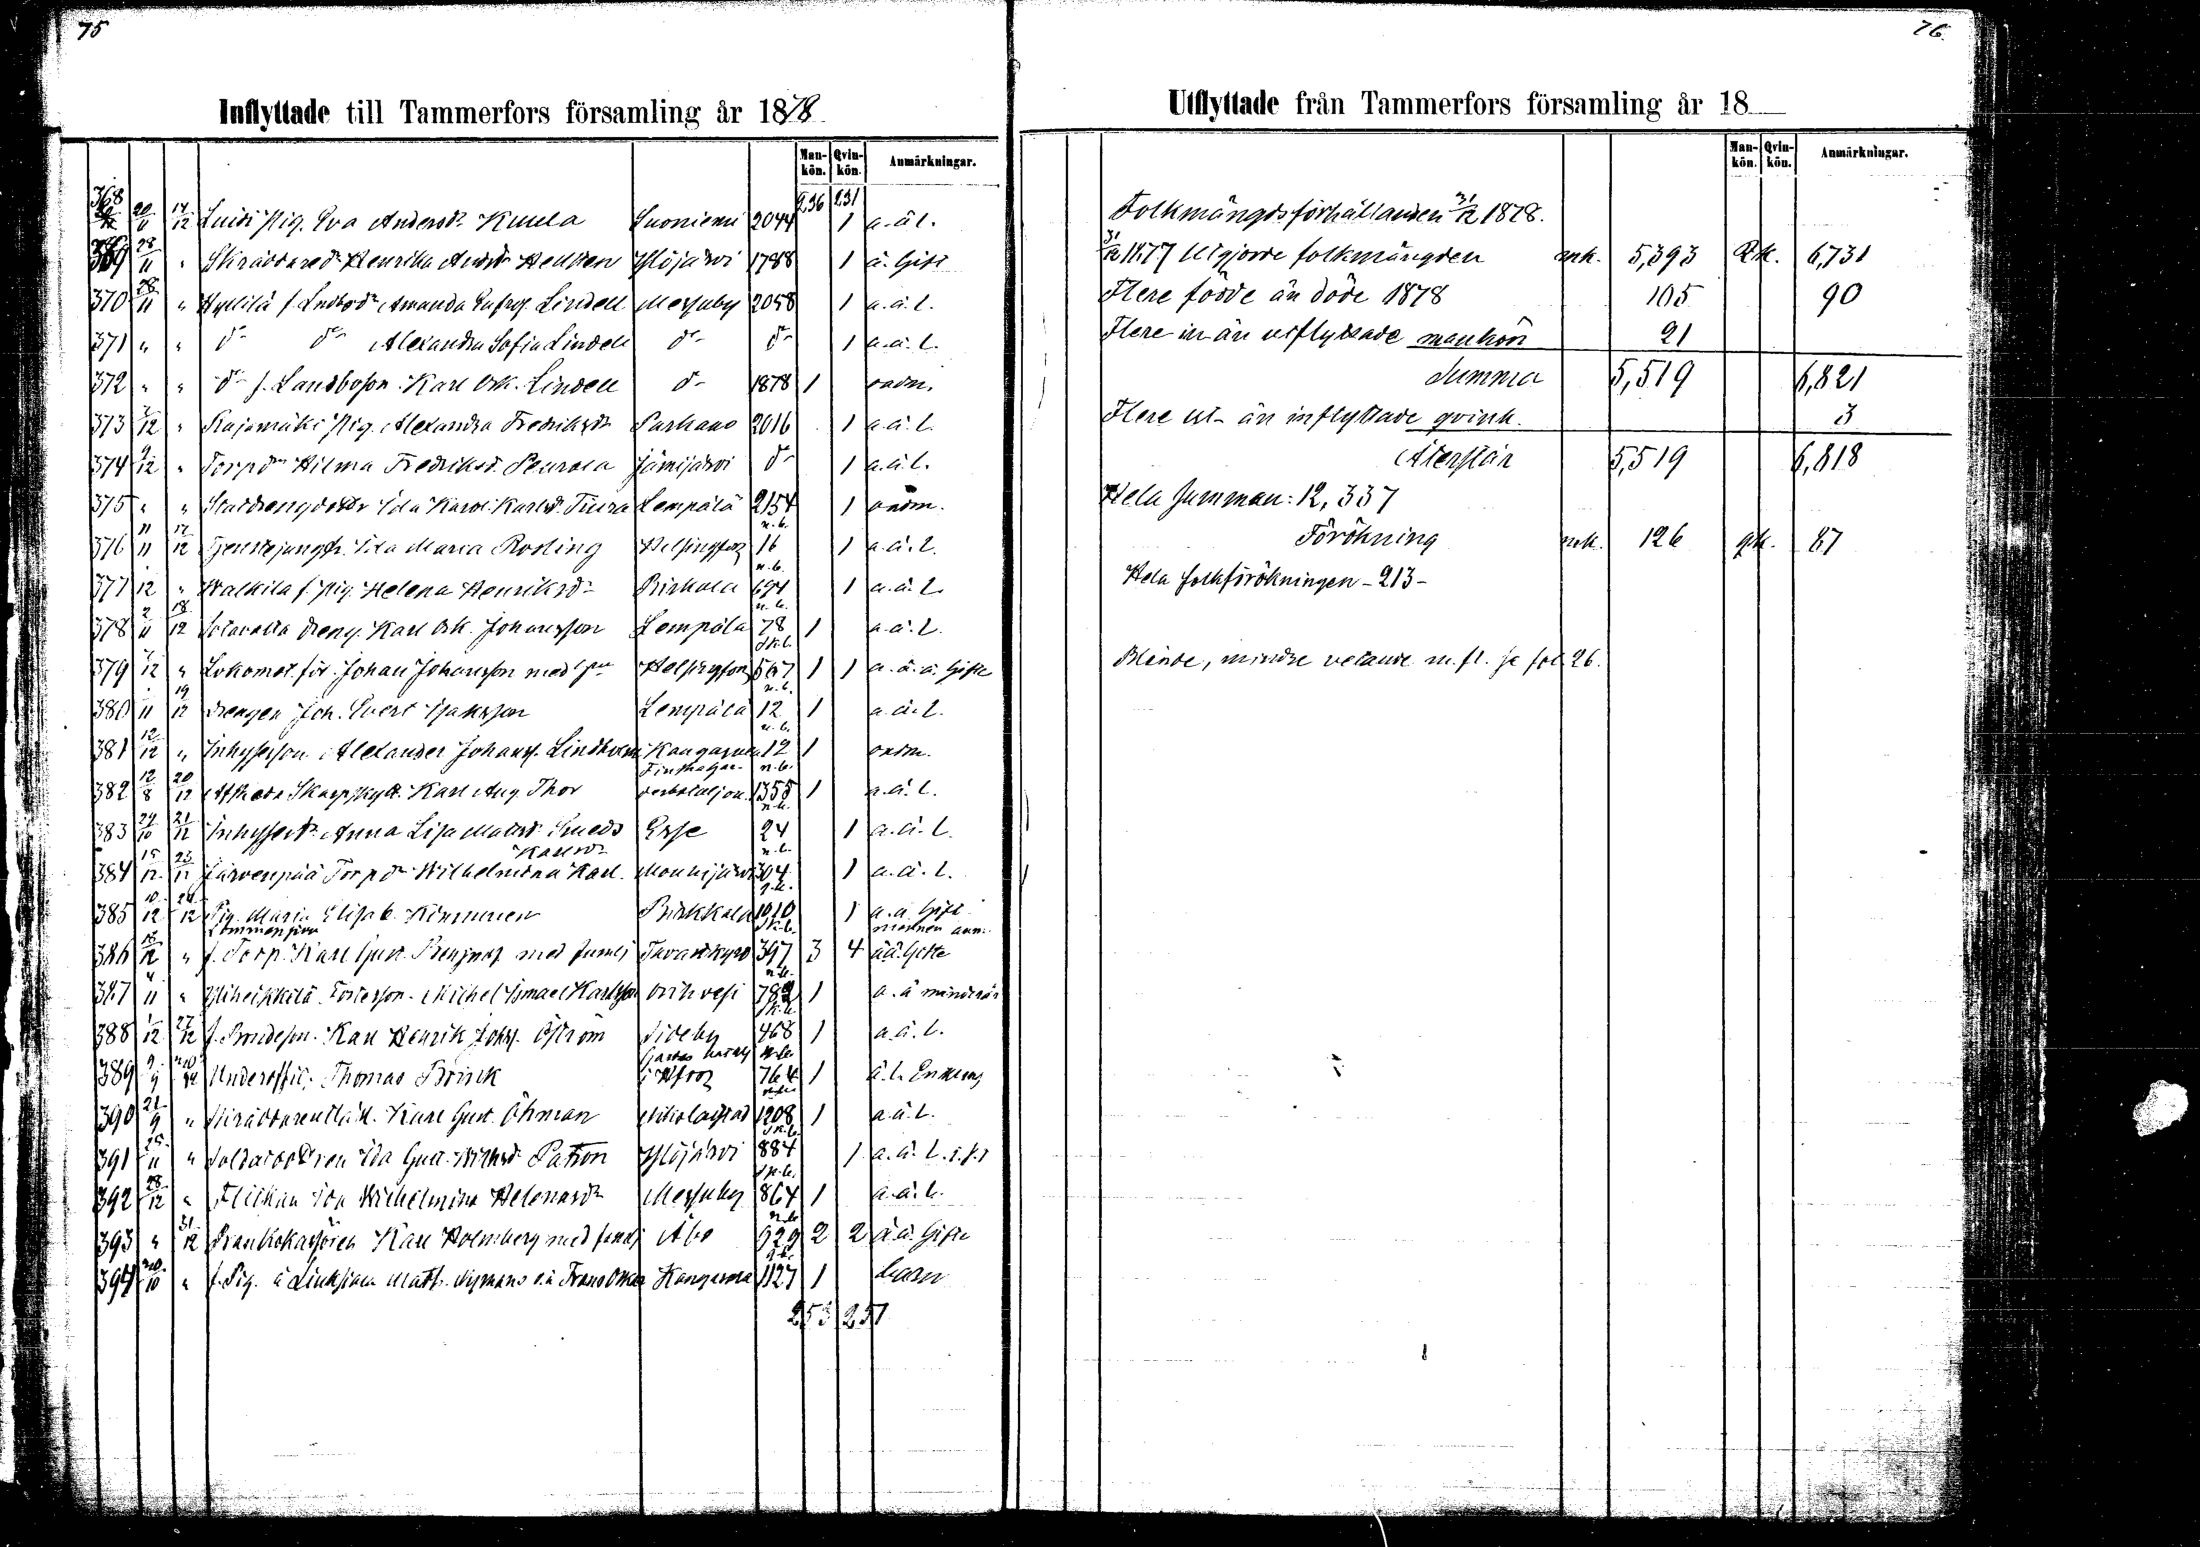 75
Inflyttade till Tammerfors församling år 1878
Man-kön. Qvin-kön. Anmärkningar.
236 231
368 20/11 14/12 Pig. Eva Andersdr Kuula Suoniemi 2044 1 a.ä.l.
369 28/11 " Skräddaredr Henrika Andrsdr Ylöjärvi 1788 1 ä. Gift
370 28/11 " Hyllilä f. Lndbodr Amanda Lindell Messuby 2058 1 a.ä.l.
371 " " do do Alexandra Sofia Lindell do do 1 a.ä.l.
372 " " do f. Landboson Karl Osk. Lindell do 1878 1 oadm.
373 /12 " Rajamäki Pig. Alexandra Fredriksdr Parkano 2016 1 a.ä.l.
374 9/12 " Torpdr Hilma Fredriksdr Jämijärvi do 1 a.ä.l.
375 " " Ida Karol. Karlsdr Lempälä 2154 1 oadm.
n.b.
376 11/11 17/12 Tjenstejungfr. Ida Maria Roding Helsingfors 16 1 a.ä.l.
n.b.
377 12 " f. Pig. Helena Henriksdr Birkala 694 1 a.ä.l.
n.b.
378 2/11 18/12 Sotavalta dreng. Karl Osk. Johansson Lempälä 78 1 a.ä.l.
Sk.b.
379 /12 " Lokomot.för. Johan Johansson med hu Helsingfors 567 1 1 a.ä.ä. Gifte
n.b.
380 11 19/12 Drengen Joh. Evert Isaksson Lempälä 12 1 a.ä.l.
n.b.
381 12/12 " Inhysesson Alexander Johanss. Lindholm Kangasala 12 1 oadm.
Finska Gar. n.b.
382 12/8 20/12 Afskeda Skarpskytt. Karl Aug Thor 1355 1 a.ä.l.
n.b.
383 24/10 21/12 Inhysesdr Anna Lisa Matsdr Smeds Esse 24 1 a.ä.l.
Karlsdr n.b.
384 15/12 23/12 Järvenpää Torpdr Wilhelmina Karl. Mouhijärvi 304 1 a.ä.l.
385 10/12 24/12 Pig. Maria Elisab. Kinnunen Birkkala 1010 1 a.ä. Gift
Sk.b. mannen
386 18/12 " f. Torp. Karl Gust. Benjmsf med familj Tavastkyro 397 3 4 ää. Gifte
n.b.
387 4/11 " Yliheikkilä Michel Ismael Karlsson Orihvesi 782 1 a.ä minderår
Sk.b.
388 1/12 27/12 f. Bondeson. Karl Henrik Johss. Öström Sideby 468 1 a.ä.l.
n.b.
389 9/9 Underoffic. Thomas Brink i Hfors 764 1 ä.l. Enkling
390 21/9 " Karl Gust. Öhman Nikolaistad 1208 1 a.ä.l.
Sk.b.
391 25/11 " Ida Gust. Patron Ylöjärvi 884 1 a.ä.l.
Sk.b.
392 28/12 " Flickan Ida Wilhelmina Helenasdr Messuby 864 1 a.ä.l.
n.b.
393 " 31/12 Karl Holmberg med familj Åbo 929 2 2 ä.ä. Gifte
394 /10 " f. Pig. Frans Oskar Kangasala 1127 1 barn
253 251
76.
Utflyttade från Tammerfors församling år 18
Man-kön. Qvin-kön. Anmärkningar.
Folkmängdsförhållanden 31/12 1878.
31/12 1877 Utgjorde folkmängden mk. 5,393 Qk. 6,731
Flere födde än döde 1878 105 90
Flere in än utflyttade mankön 21
Summa 5,519 6,821
Flere ut- än inflyttade qvink. 3
Återstår 5,519 6,818
Hela Summan: 12,337
Förökning mk. 126 qk. 87
Hela folkförökningen - 213 -
Blinde, mindre vetande m.fl. se fol. 26.